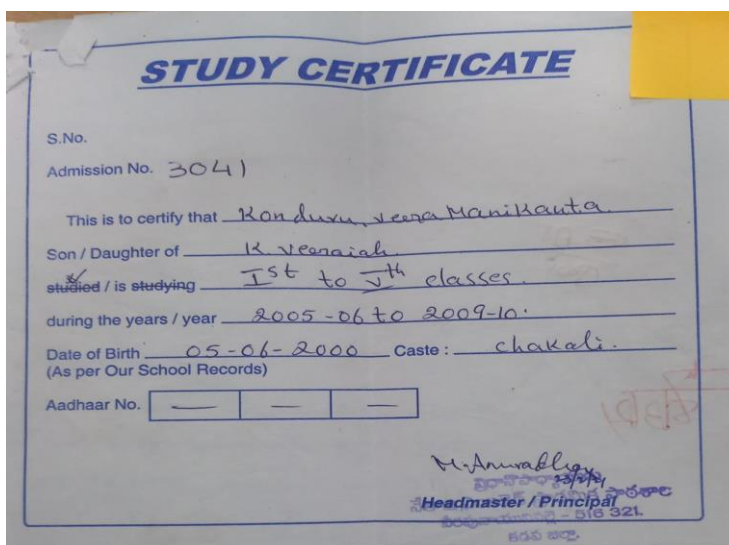 STUDY CERTIFICATE
S.No.
Admission No. 3041
This is to certify that Konduru, veera Manikanta.
Son / Daughter of K. Veeraiah
studied / is studying Ist to Vth classes.
during the years / year 2005-06 to 2009-10.
Date of Birth 05-06-2000 Caste : chakali.
(As per Our School Records)
Aadhaar No. — — —
M. Anuradha
Headmaster / Principal
516 321.
కడప జిల్లా